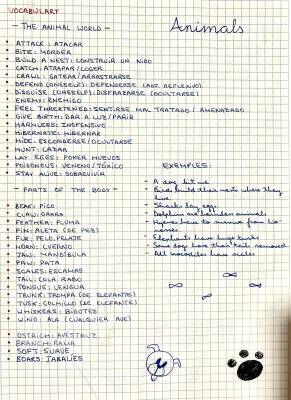 VOCABULARY
- THE ANIMAL WORLD -
Animals
• ATTACK: ATACAR
• BITE: MORDER
• BUILD A NEST: CONSTRUIR UN NIDO
• CATCH: ATRAPAR/COGER
• CRAWL: GATEAR/ARRASTRARSE
• DEFEND (ONESELF): DEFENDERSE (LAST REFLEXIVO)
• DISGUISE (ONESELF): DISFRAZARSE (OCULTARSE)
• ENEMY: ENEMIGO
• FEEL THREATENED: SENTIRSE MAL TRATADO / AMENAZADO
• GIVE BIRTH: DAR A LUZ/PARIR
• HARMLESS: INOFENSIVO
• HIBERNATE: HIBERNAR
• HIDE: ESCONDERSE/OCULTARSE
• HUNT: CAZAR
• LAY EGGS: PONER HUEVOS
• POISONOUS: VENENO/TÓXICO
• STAY ALIVE: SOBREVIVIR
- PARTS OF THE BODY -
• BEAK: PICO
• CLAW: GARRA
• FEATHER: PLUMA
• FIN: ALETA (DE PEZ)
• FUR: PELO, PELAJE
• HORN: CUERNO
• JAW: MANDÍBULA
• PAW: PATA
• SCALES: ESCAMAS
• TAIL: COLA, RABO
• TONGUE: LENGUA
• TRUNK: TROMPA (DE ELEFANTE)
• TUSK: COLMILLO (DE ELEFANTE)
• WHISKERS: BIGOTES
• WING: ALA (CUALQUIER AVE)
• OSTRICH: AVESTRUZ
• BRANCH: RAMA
• SOFT: SUAVE
• BOARS: JABALÍES
EXAMPLES:
- A dog bit me
- Birds build their nests where they
live
- Sharks lay eggs
- Dolphins are harmless animals
- have to survive from
- Elephants have huge tusks
- Some dogs have their tails removed
- All crocodiles have scales